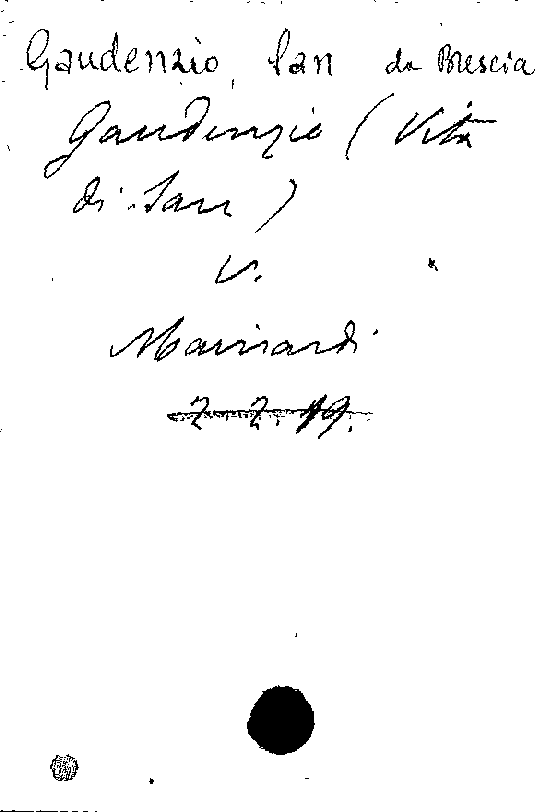 Gaudenzio, San da Brescia
Gaudenzio (Vita
di San)
V.
Mainardi
Z. Z. 19.